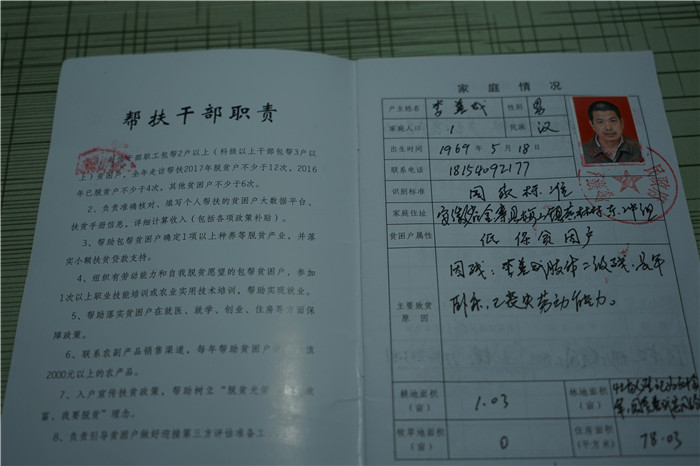 帮扶干部职责
部职工包帮2户以上（科级以上干部包帮3户以
上）贫困户，全年走访帮扶2017年脱贫户不少于12次，2016
年已脱贫户不少于4次，其他贫困户不少于6次。
2、负责准确核对、填写个人帮扶贫困户大数据平台、
扶贫手册信息，详细计算收入（包括各项政策补贴）。
3、帮助包帮贫困户确定1项以上种养等脱贫产业，并落
实小额扶贫贷款支持。
4、组织有劳动能力和自我脱贫愿望的包帮贫困户，参加
1次以上职业技能培训或农业实用技术培训，帮助实现就业。
5、帮助落实贫困户在就医、就学、创业、住房等方面保
障政策。
6、联系农副产品销售渠道，每年帮助贫困户 值
2000元以上的农产品。
7、入户宣传扶贫政策，帮助树立“脱贫光荣
富，我要脱贫”理念。
8、负责引导贫困户做好迎接第三方评估准备工
家庭情况
户主姓名 李 性别 男
家庭人口 1 民族 汉
出生时间 1969年5月18日
联系电话 18154092177
识别标准 国家标准
家庭住址 安徽省金寨县
贫困户属性 低保贫困户
主要致贫
原因
因残：李 肢体二级残，长年
卧床，已丧失劳动能力。
耕地面积
（亩）
1.03
林地面积
（亩）
牧草地面积
（亩）
0
住房面积
（平方米）
78.03